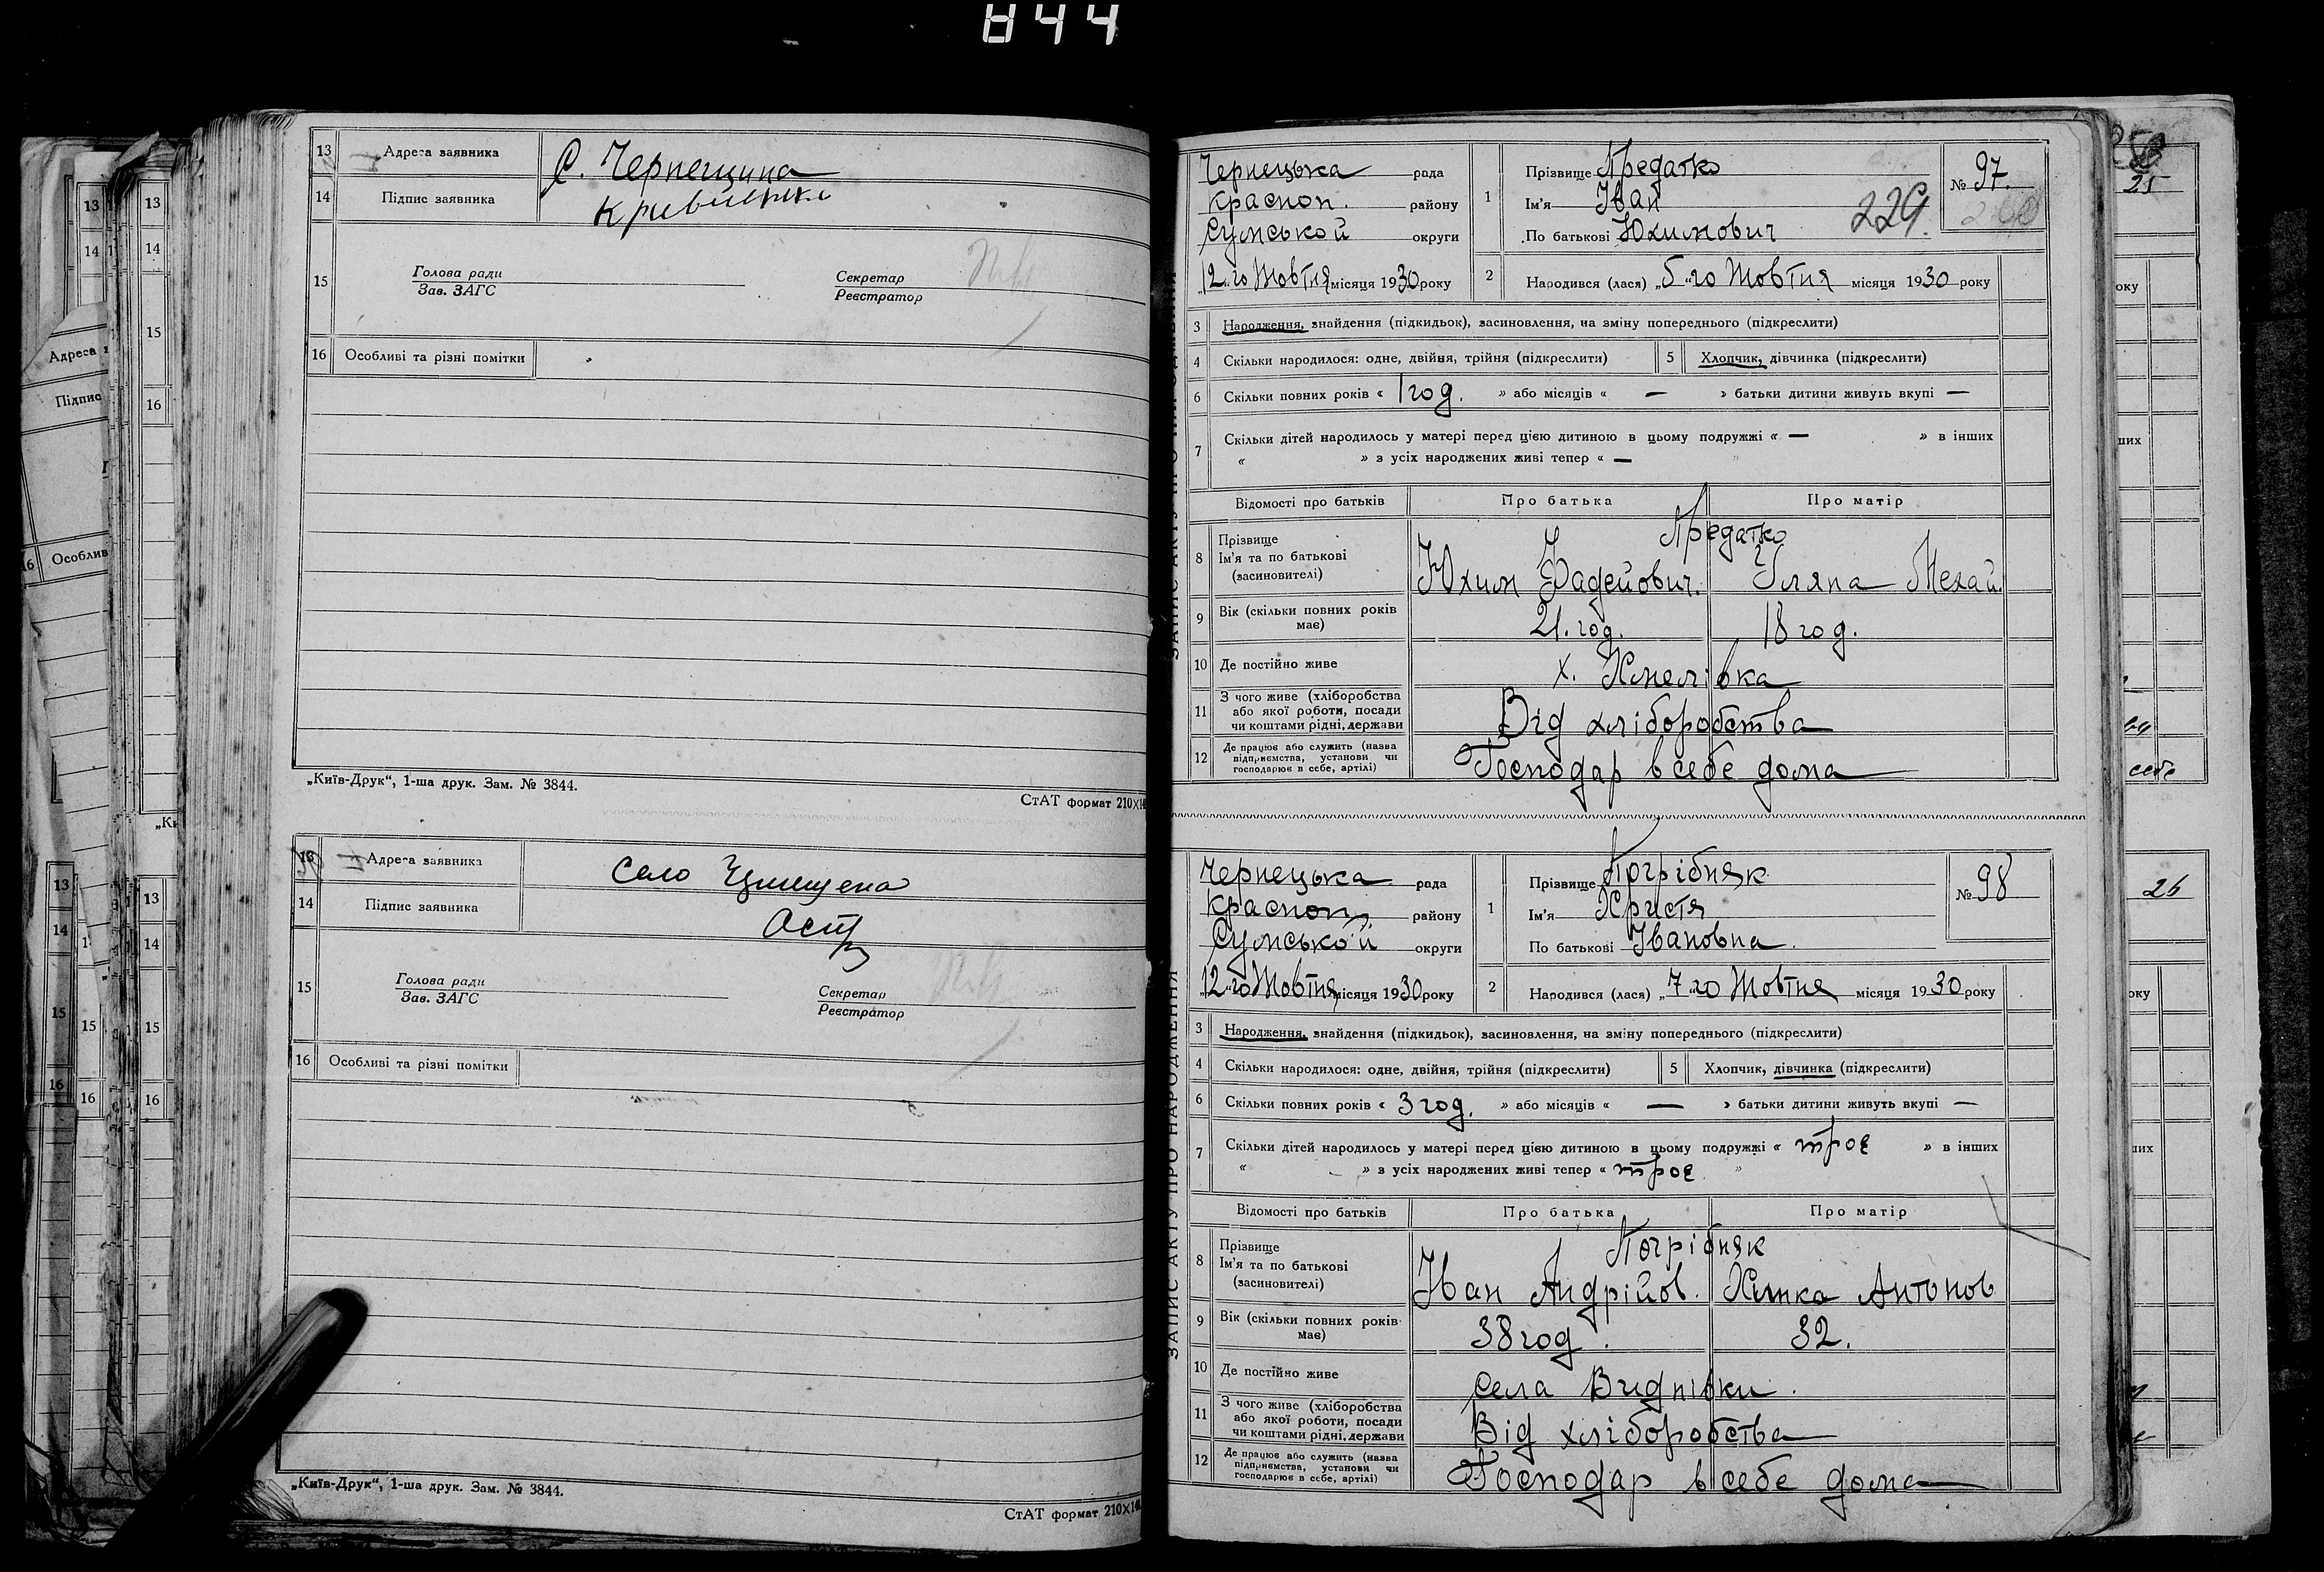 844
13 Адреса заявника С. Чернещина
14 Підпис заявника
15 Голова ради Секретар
Зав. ЗАГС Реєстратор
16 Особливі та різні помітки
„Київ-Друк“, 1-ша друк. Зам. № 3844.
СтАТ формат 210×14
13 Адреса заявника Село
14 Підпис заявника
15 Голова ради Секретар
Зав. ЗАГС Реєстратор
16 Особливі та різні помітки
„Київ-Друк“, 1-ша друк. Зам. № 3844.
СтАТ формат 210×14
Чернецька рада
Краспоп. району
Сумськой округи
„12“го Жовтня місяця 1930 року
1 Прізвище Предатко
Ім'я Іван
По батькові Юхимович
№ 97.
229.
2 Народився (лася) „5“го Жовтня місяця 1930 року
3 Народження, знайдення (підкидьок), засиновлення, на зміну попереднього (підкреслити)
4 Скільки народилося: одне, двійня, трійня (підкреслити) 5 Хлопчик, дівчинка (підкреслити)
6 Скільки повних років « 1 год. » або місяців « — » батьки дитини живуть вкупі —
7 Скільки дітей народилось у матері перед цією дитиною в цьому подружжі « — » в інших
« » з усіх народжених живі тепер « — »
Відомості про батьків Про батька Про матір
8 Прізвище Предатко
Ім'я та по батькові
(засиновителі) Юхим Фадейович. Уляна Мехай.
9 Вік (скільки повних років має) 21. год. 18 год.
10 Де постійно живе х. Хмелівка
11 З чого живе (хліборобства
або якої роботи, посади
чи коштами рідні, держави Від хліборобства
12 Де працює або служить (назва
підприємства, установи чи
господарює в себе, артілі) Господар в себе дома
ЗАПИС АКТУ ПРО НАРОДЖЕННЯ
Чернецька рада
Краспоп. району
Сумськой округи
„12“го Жовтня місяця 1930 року
1 Прізвище Погрібняк
Ім'я Христя
По батькові Івановна.
№ 98
2 Народився (лася) „7“го Жовтня місяця 1930 року
3 Народження, знайдення (підкидьок), засиновлення, на зміну попереднього (підкреслити)
4 Скільки народилося: одне, двійня, трійня (підкреслити) 5 Хлопчик, дівчинка (підкреслити)
6 Скільки повних років « 3 год. » або місяців « — » батьки дитини живуть вкупі —
7 Скільки дітей народилось у матері перед цією дитиною в цьому подружжі « троє » в інших
« » з усіх народжених живі тепер « троє »
Відомості про батьків Про батька Про матір
8 Прізвище Погрібняк
Ім'я та по батькові
(засиновителі) Іван Андрійов. Антонов
9 Вік (скільки повних років має) 38 год. 32.
10 Де постійно живе села Виднівки.
11 З чого живе (хліборобства
або якої роботи, посади
чи коштами рідні, держави Від хліборобства
12 Де працює або служить (назва
підприємства, установи чи
господарює в себе, артілі) Господар в себе дома
ЗАПИС АКТУ ПРО НАРОДЖЕННЯ
25
26